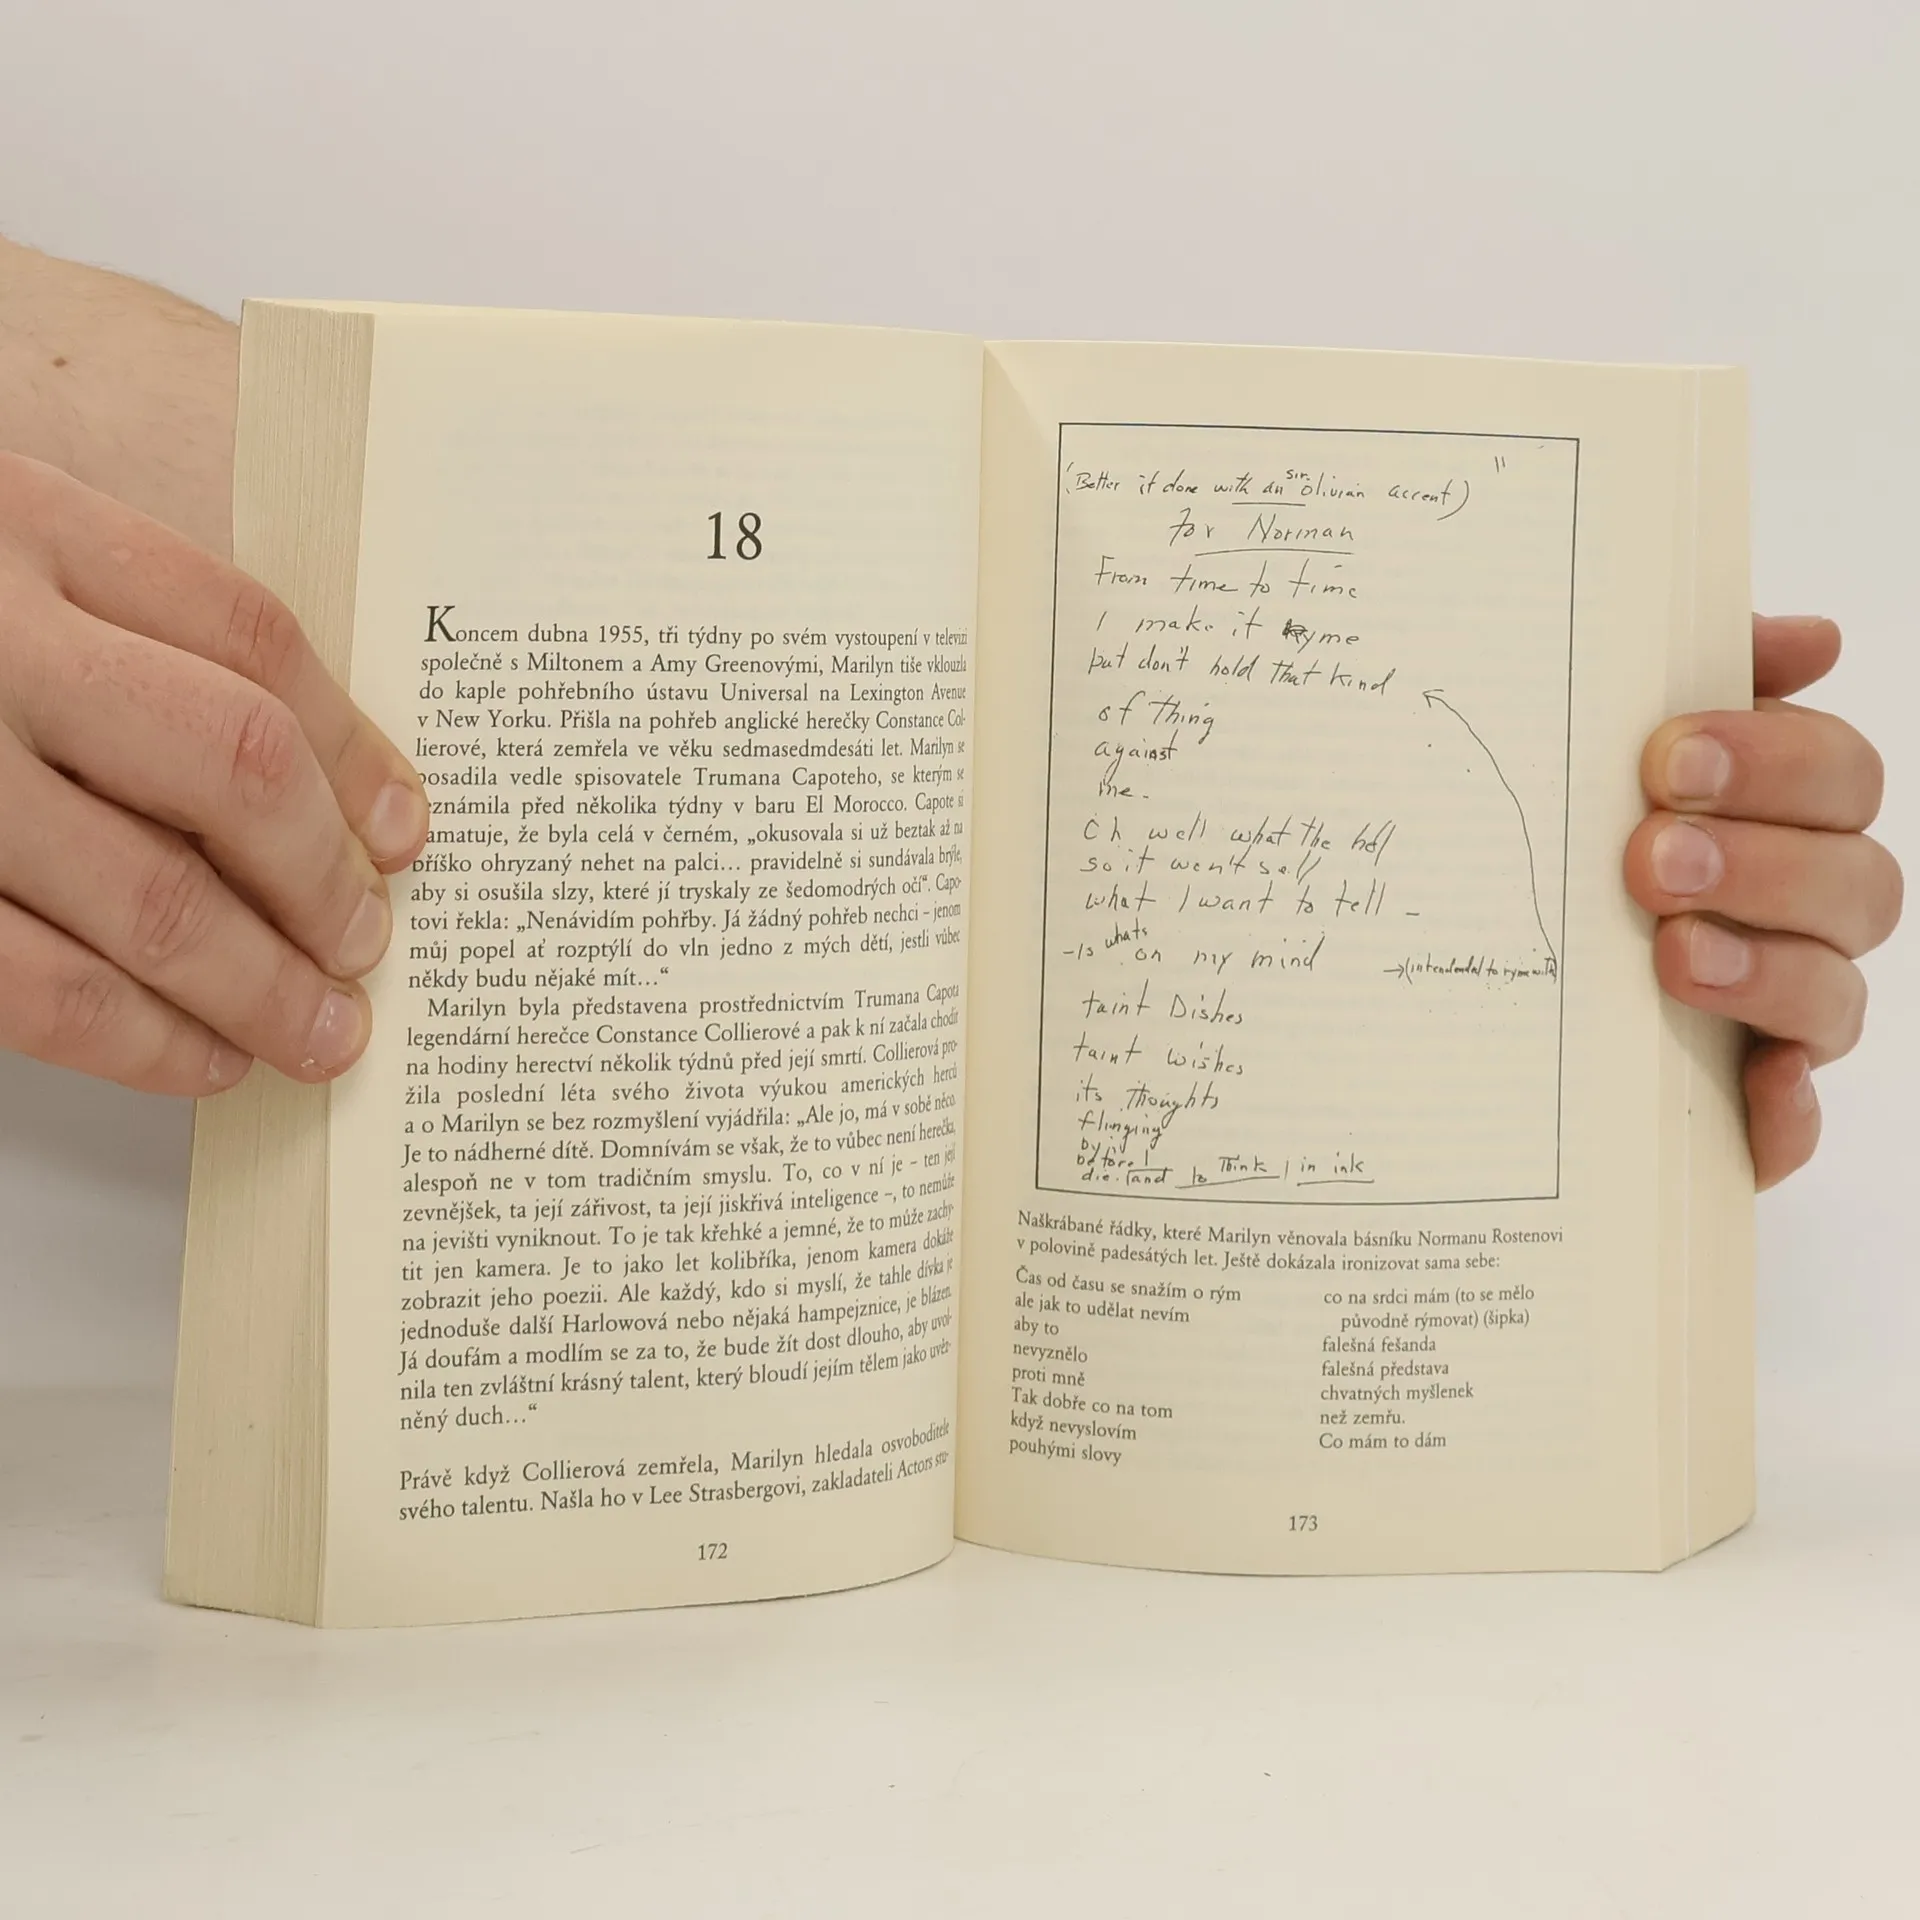 18
Koncem dubna 1955, tři týdny po svém vystoupení v televizi
společně s Miltonem a Amy Greenovými, Marilyn tiše vklouzla
do kaple pohřebního ústavu Universal na Lexington Avenue
v New Yorku. Přišla na pohřeb anglické herečky Constance Col-
lierové, která zemřela ve věku sedmasedmdesáti let. Marilyn se
posadila vedle spisovatele Trumana Capoteho, se kterým se
eznámila před několika týdny v baru El Morocco. Capote si
amatuje, že byla celá v černém, „okusovala si už beztak až na
bříško ohryzaný nehet na palci… pravidelně si sundávala brýle,
aby si osušila slzy, které jí tryskaly ze šedomodrých očí“. Capo-
tovi řekla: „Nenávidím pohřby. Já žádný pohřeb nechci – jenom
můj popel ať rozptýlí do vln jedno z mých dětí, jestli vůbec
někdy budu nějaké mít…“
Marilyn byla představena prostřednictvím Trumana Capota
legendární herečce Constance Collierové a pak k ní začala chodit
na hodiny herectví několik týdnů před její smrtí. Collierová pro-
žila poslední léta svého života výukou amerických herců
a o Marilyn se bez rozmyšlení vyjádřila: „Ale jo, má v sobě něco.
Je to nádherné dítě. Domnívám se však, že to vůbec není herečka,
alespoň ne v tom tradičním smyslu. To, co v ní je – ten její
zevnějšek, ta její zářivost, ta její jiskřivá inteligence –, to nemůže
na jevišti vyniknout. To je tak křehké a jemné, že to může zachy-
tit jen kamera. Je to jako let kolibříka, jenom kamera dokáže
zobrazit jeho poezii. Ale každý, kdo si myslí, že tahle dívka je
jednoduše další Harlowová nebo nějaká hampejznice, je blázen.
Já doufám a modlím se za to, že bude žít dost dlouho, aby uvol-
nila ten zvláštní krásný talent, který bloudí jejím tělem jako uvěz-
něný duch…“
Právě když Collierová zemřela, Marilyn hledala osvoboditele
svého talentu. Našla ho v Lee Strasbergovi, zakladateli Actors stu-
172
(Better if done with an sir. olivian accent) "
For Norman
From time to time
I make it ryme
but don't hold that kind
of thing
against
me -
Oh well what the hell
so it won't sell
what I want to tell -
- Is whats on my mind →(intendended to ryme with)
taint Dishes
taint wishes
its thoughts
flinging
by
before I
die. (and to Think / in ink
Naškrábané řádky, které Marilyn věnovala básníku Normanu Rostenovi
v polovině padesátých let. Ještě dokázala ironizovat sama sebe:
Čas od času se snažím o rým
ale jak to udělat nevím
aby to
nevyznělo
proti mně
Tak dobře co na tom
když nevyslovím
pouhými slovy
co na srdci mám (to se mělo
původně rýmovat) (šipka)
falešná fešanda
falešná představa
chvatných myšlenek
než zemřu.
Co mám to dám
173